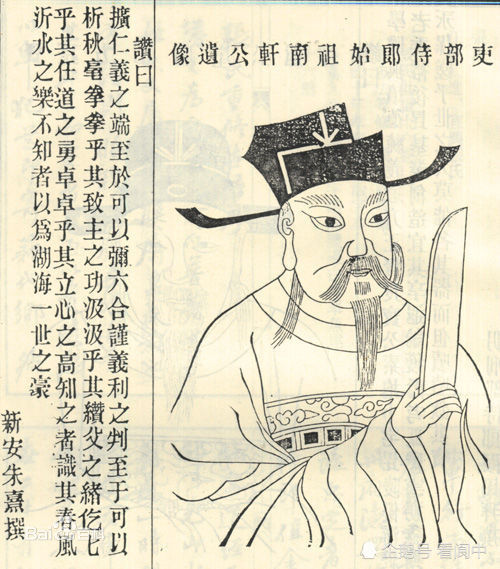 吏部侍郎始祖南軒公遺像
讚曰
擴仁義之端至於可以彌六合謹義利之判至于可以
析秋毫拳拳乎其致主之功汲汲乎其纘父之緒仡七
乎其任道之勇卓卓乎其立心之高知之者識其春風
沂水之樂不知者以爲湖海一世之豪
新安朱熹撰
Baidu百科
企鹅号 看闻中